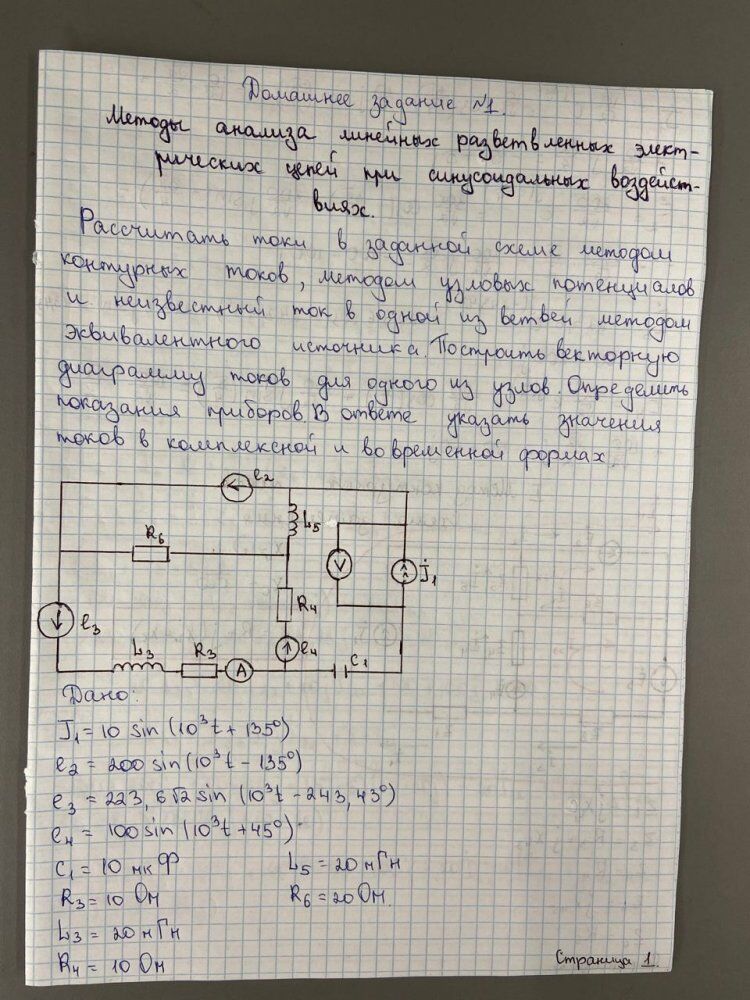 Домашнее задание №1.
Методы анализа линейных разветвленных элект-
рических цепей при синусоидальных воздейст-
виях.
Рассчитать токи в заданной схеме методом
контурных токов, методом узловых потенциалов
и неизвестный ток в одной из ветвей методом
эквивалентного источника. Построить векторную
диаграмму токов для одного из узлов. Определить
показания приборов. В ответе указать значения
токов в комплексной и во временной формах.
e2
L5
R6
V
J̇1
e3
R4
L3
R3
A
e4
C1
Дано:
J1 = 10 sin (10³t + 135°)
e2 = 200 sin (10³t - 135°)
e3 = 223,6√2 sin (10³t - 243,43°)
e4 = 100 sin (10³t + 45°)
C1 = 10 мкФ
L5 = 20 мГн
R3 = 10 Ом
R6 = 20 Ом.
L3 = 20 мГн
R4 = 10 Ом
Страница 1.